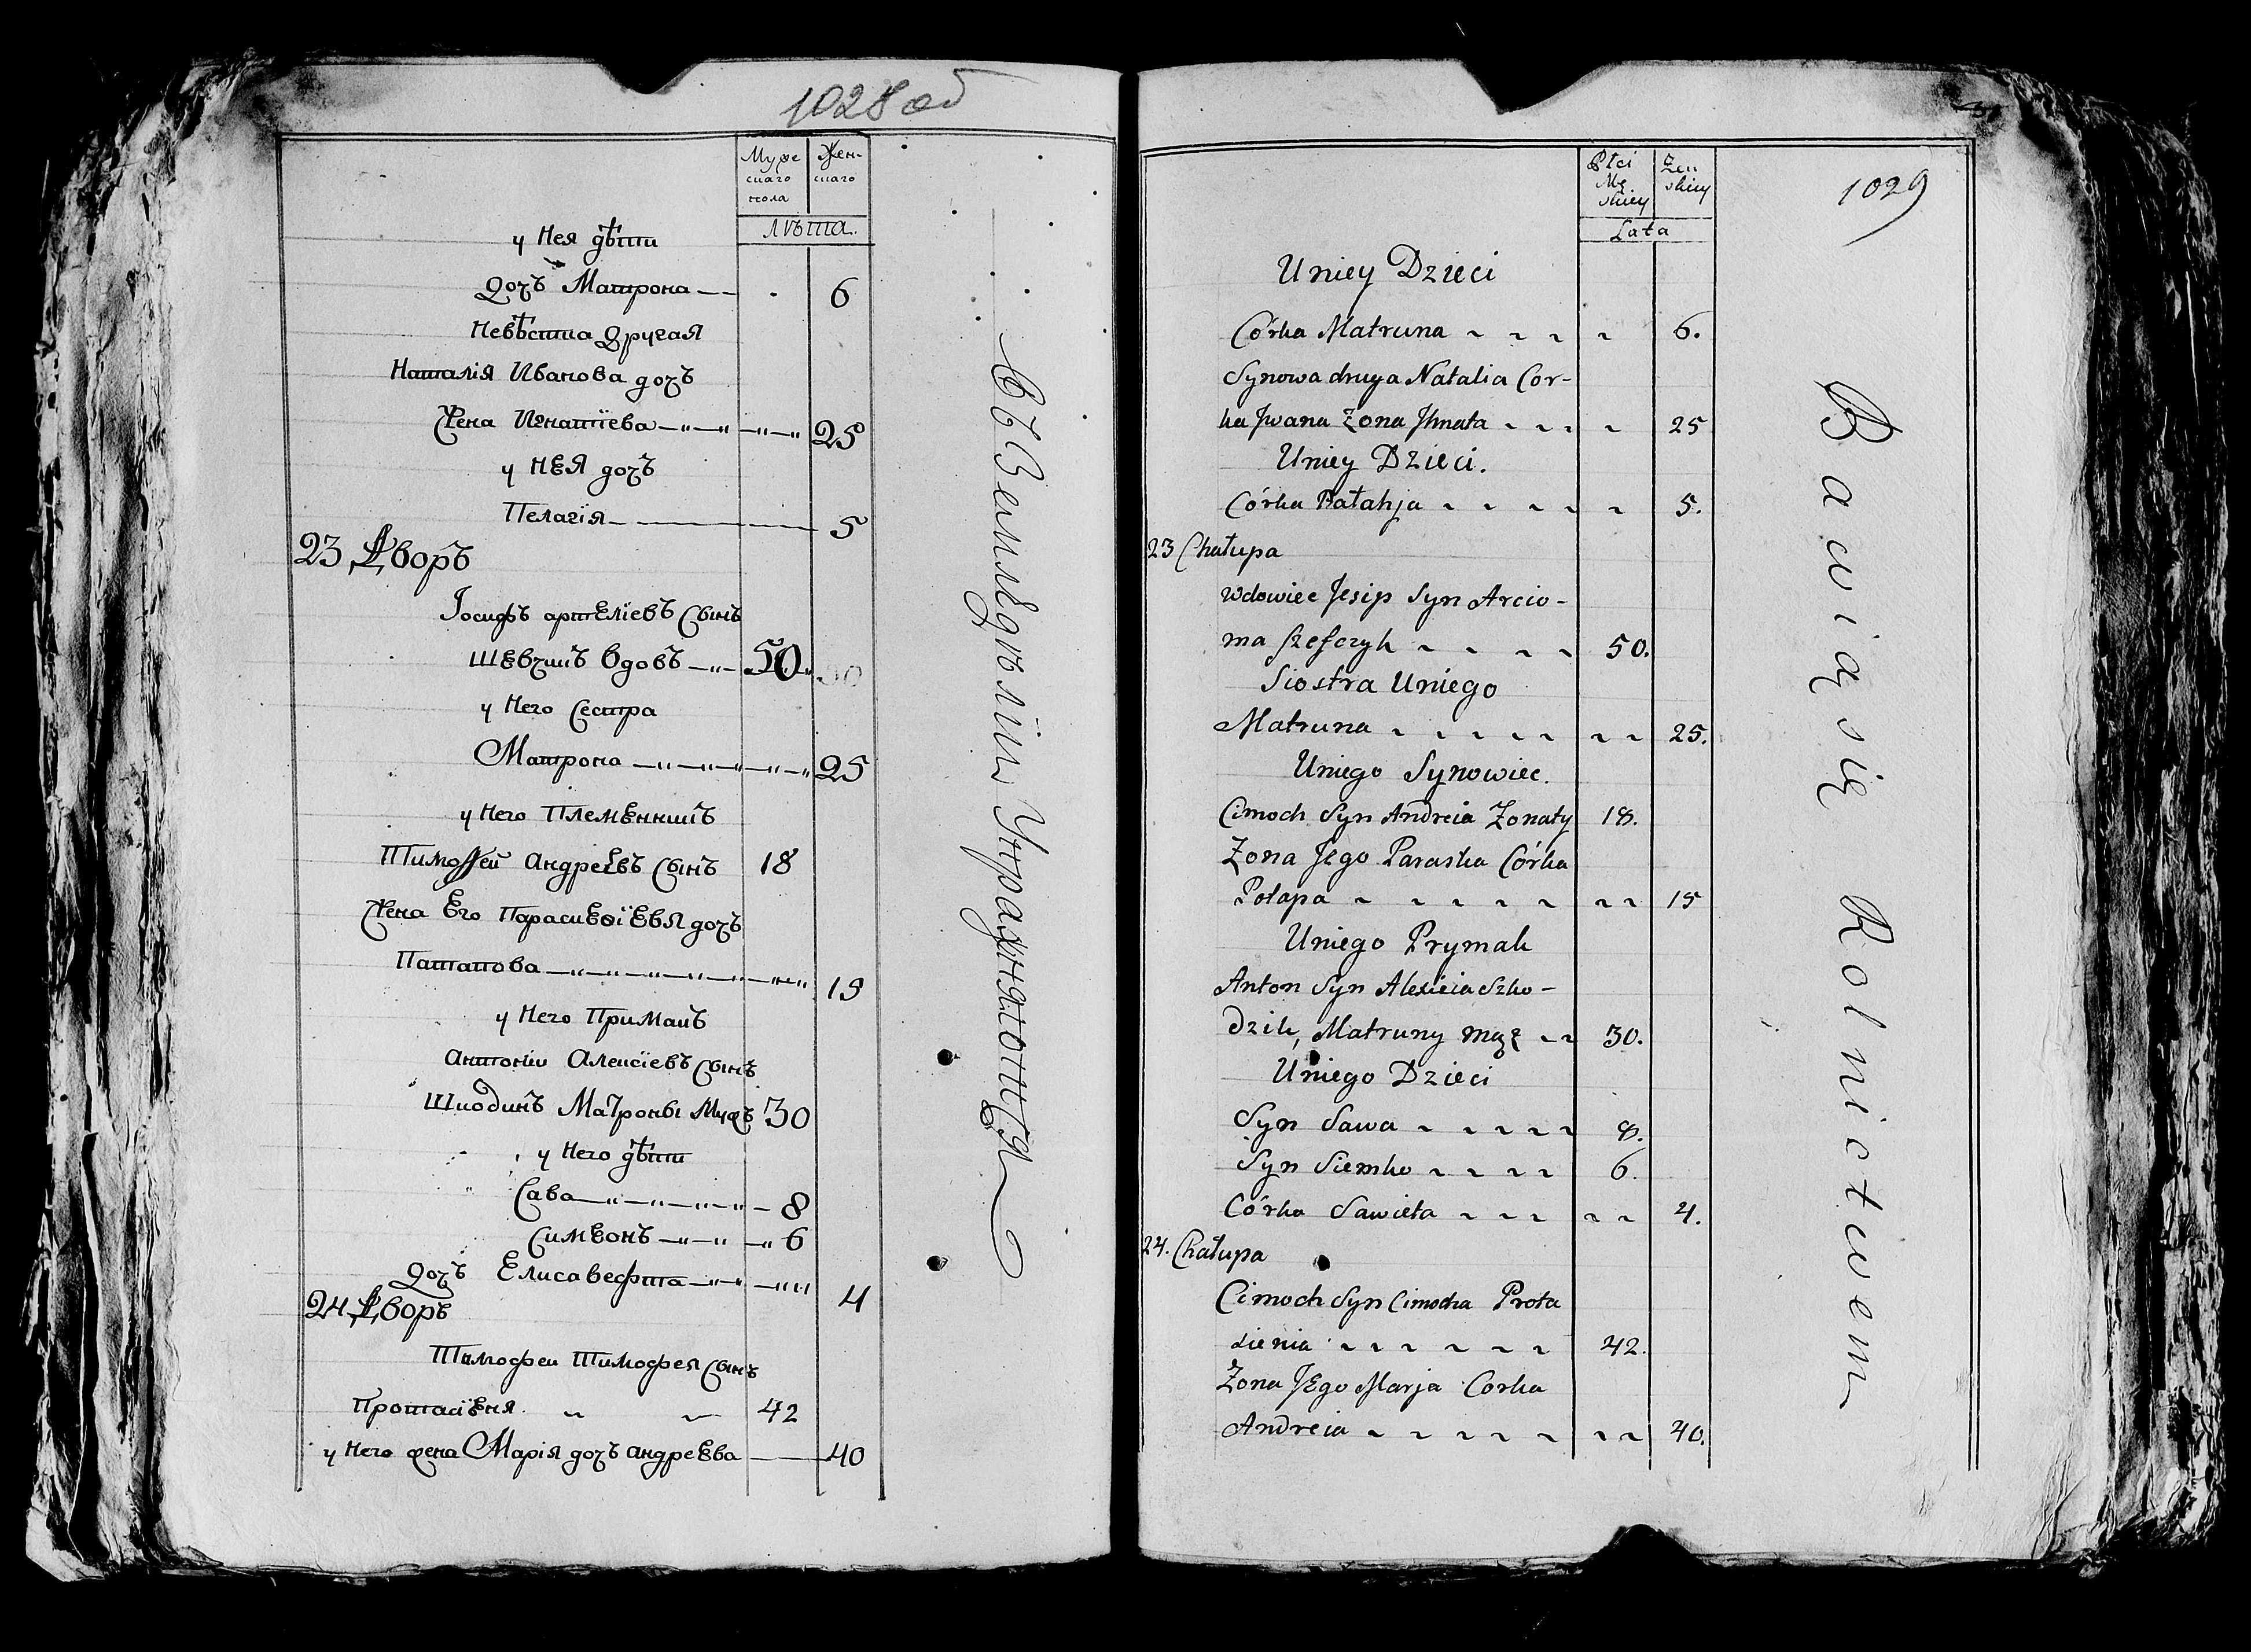 1028 об
Муже Жен-
скаго скаго
пола
Лѣта.
у Нея дѣти
Дочъ Матрона 6
Невѣстка другая
Наталія Иванова дочъ
Жена Игнатіева 25
у Нея дочъ
Пелагія 5
23 Дворъ
Іосифъ артеміевъ Сынъ
Шевчикъ Вдовъ 50
у Него Сестра
Матрона 25
у Него Племенникъ
Тимофей андреевъ Сынъ 18
Жена Его Парасковіевя дочъ
Патапова 15
у Него Примакъ
Антоній Алексіевъ Сынъ
Шкодикъ Матроны Мужъ 30
у Него дѣти
Сава 8
Симеонъ 6
Дочъ Елисавефта 4
24 Дворъ
Тимофеи Тимофея Сынъ
Протасеня 42
у Него жена Марія дочъ андреева 40
Въ Земледѣліи Упражняются
1029
Płci Żen
Mę skiey
skiey
Lata
Uniey Dzieci
Córka Matruna 6.
Synowa druga Natalia Cor-
ka Jwana Żona Jhnata 25
Uniey Dzieci.
Córka Pałahja 5.
23 Chałupa
Wdowiec Jesip Syn Arcio-
ma Szefczyk 50.
Siostra Uniego
Matruna 25.
Uniego Synowiec.
Cimoch Syn Andreia Żonaty 18.
Żona Jego Paraska Córka
Potapa 15
Uniego Prymak
Anton Syn Alexieia Szko-
dzik, Matruny mąż 30.
Uniego Dzieci
Syn Sawa 8.
Syn Siemko 6.
Córka Sawieta 4.
24. Chałupa
Cimoch Syn Cimocha Prota
sienia 42.
Żona JEgo Marja Corka
Andreia 40.
Bawią się Rolnictwem